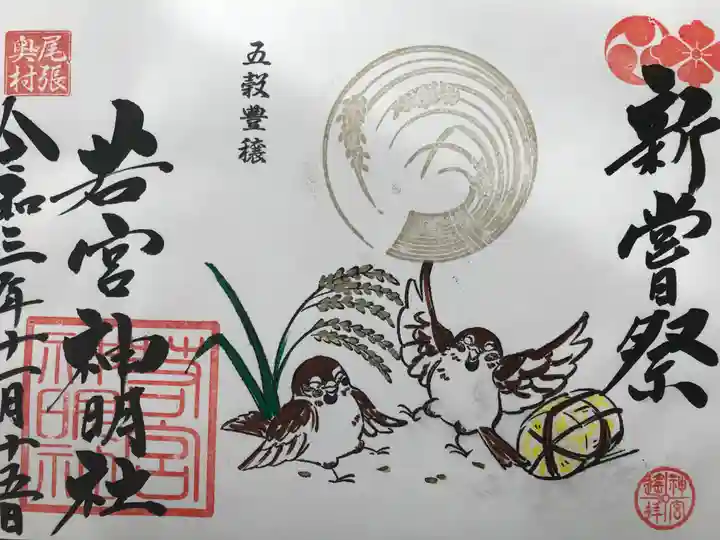 新嘗祭
神宮
遙拝
五穀豊穣
若宮神明社
若宮
神明社
尾張
奥村
令和三年十一月十五日